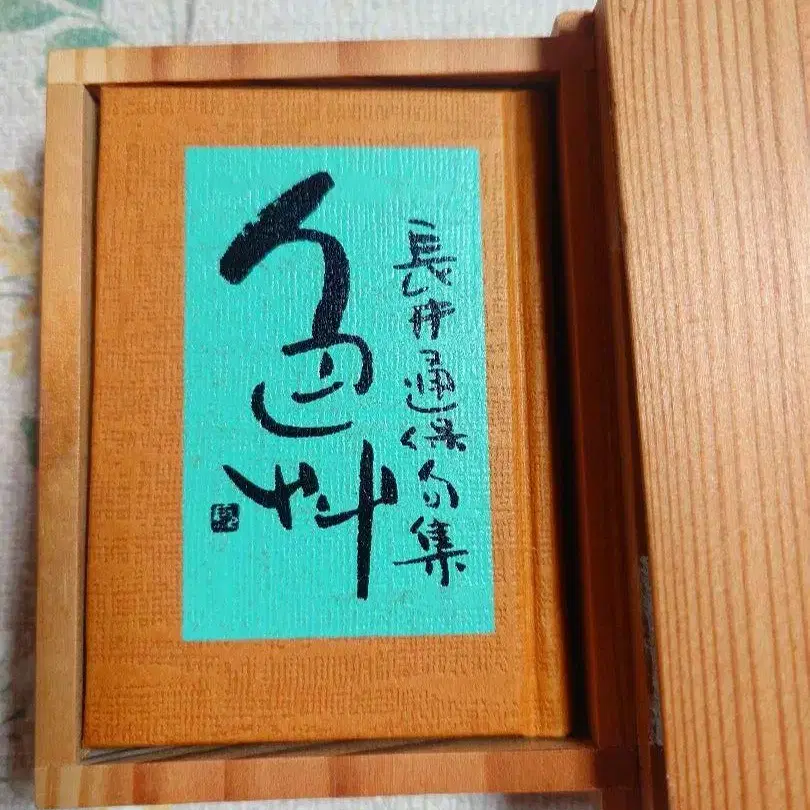 長井通保句集
艸